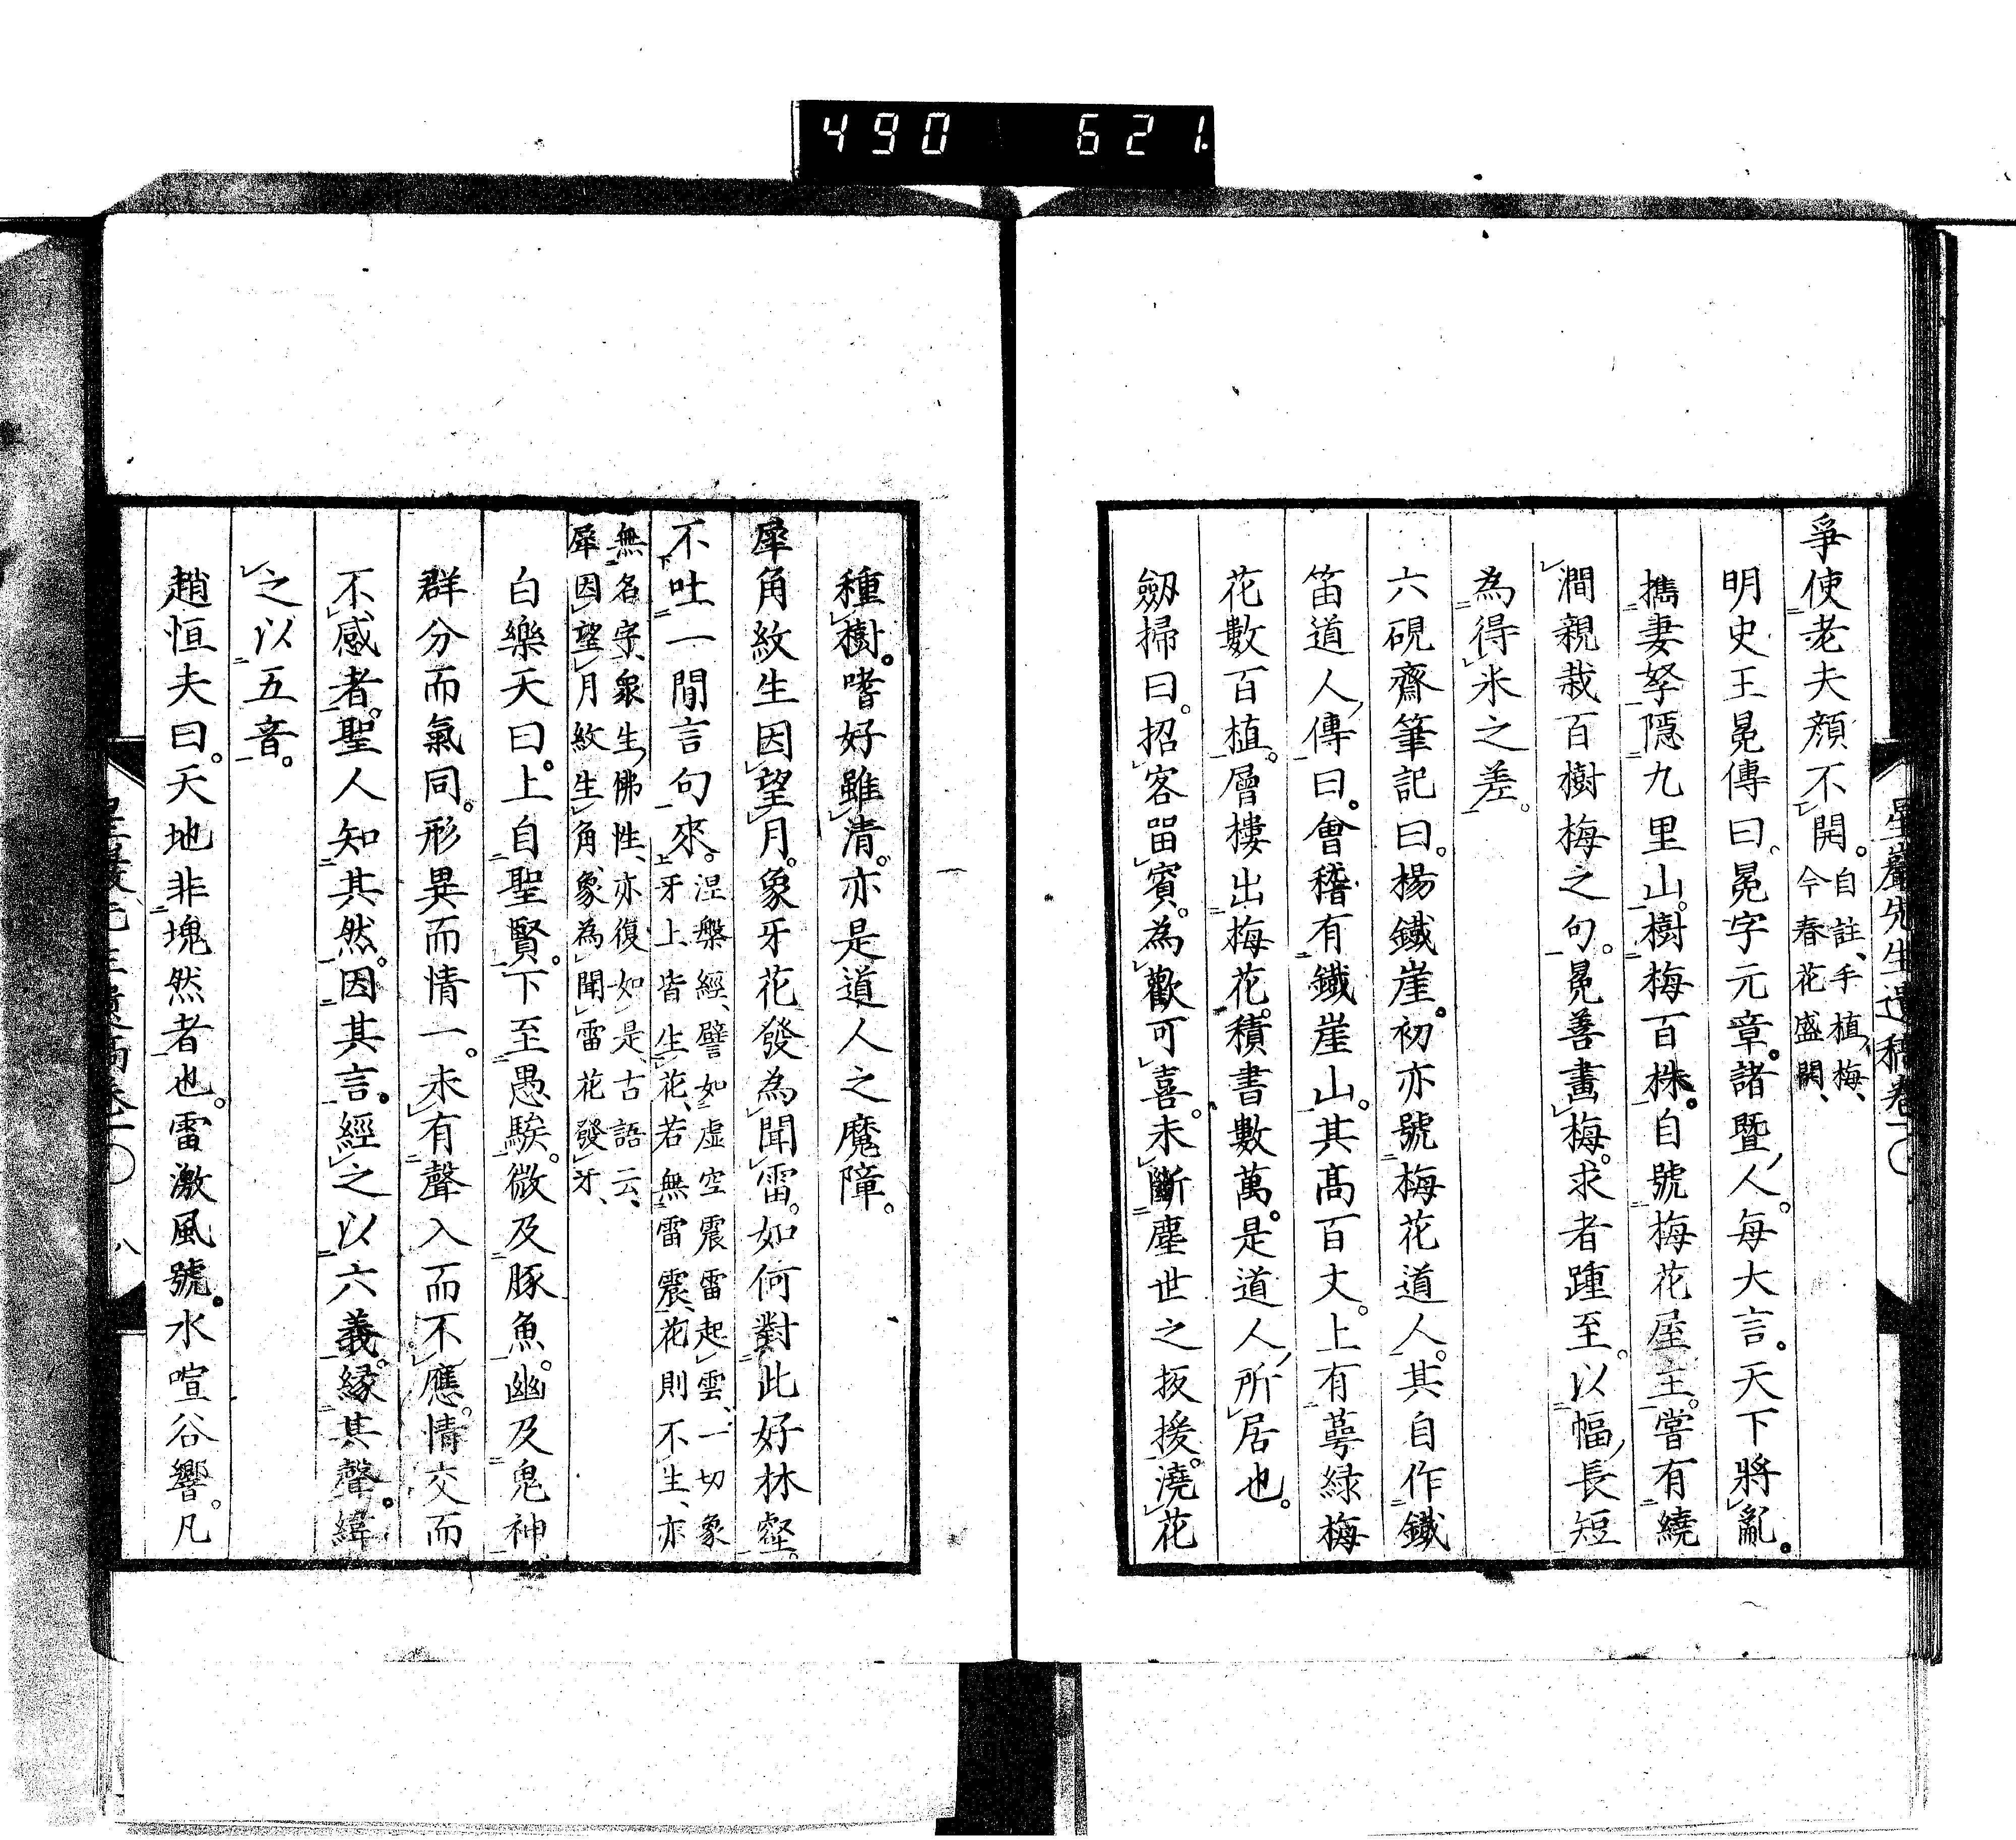 490 621.
星巖先生遺稿卷
爭使老夫顔不開。自註、手植梅、
今春花盛開、
明史王冕傳曰。冕字元章。諸曁人。每大言。天下將亂。
攜妻孥隱九里山。樹梅百株。自號梅花屋主。嘗有繞
澗親栽百樹梅之句。冕善畫梅。求者踵至。以幅長短
為得米之差。
六硯齋筆記曰。楊鐵崖。初亦號梅花道人。其自作鐵
笛道人傳曰。會稽有鐵崖山。其高百丈。上有萼綠梅
花數百植。層樓出梅花。積書數萬。是道人所居也。
劔掃曰。招客畱賓。為歡可喜。未斷塵世之扳援。澆花
種樹。嗜好雖清。亦是道人之魔障。
犀角紋生因望月。象牙花發為聞雷。如何對此好林壑。
不吐一閒言句來。涅槃經、譬如虛空震雷起雲、一切象
牙上皆生花、若無雷震、花則不生、亦
無名字、衆生佛性、亦復如是、古語云、
犀因望月紋生角、象為聞雷花發牙、
白樂天曰。上自聖賢。下至愚騃。微及豚魚。幽及鬼神。
群分而氣同。形異而情一。未有聲入而不應。情交而
不感者。聖人知其然。因其言。經之以六義。緣其聲。緯
之以五音。
趙恒夫曰。天地非塊然者也。雷激風號。水喧谷響。凡
八